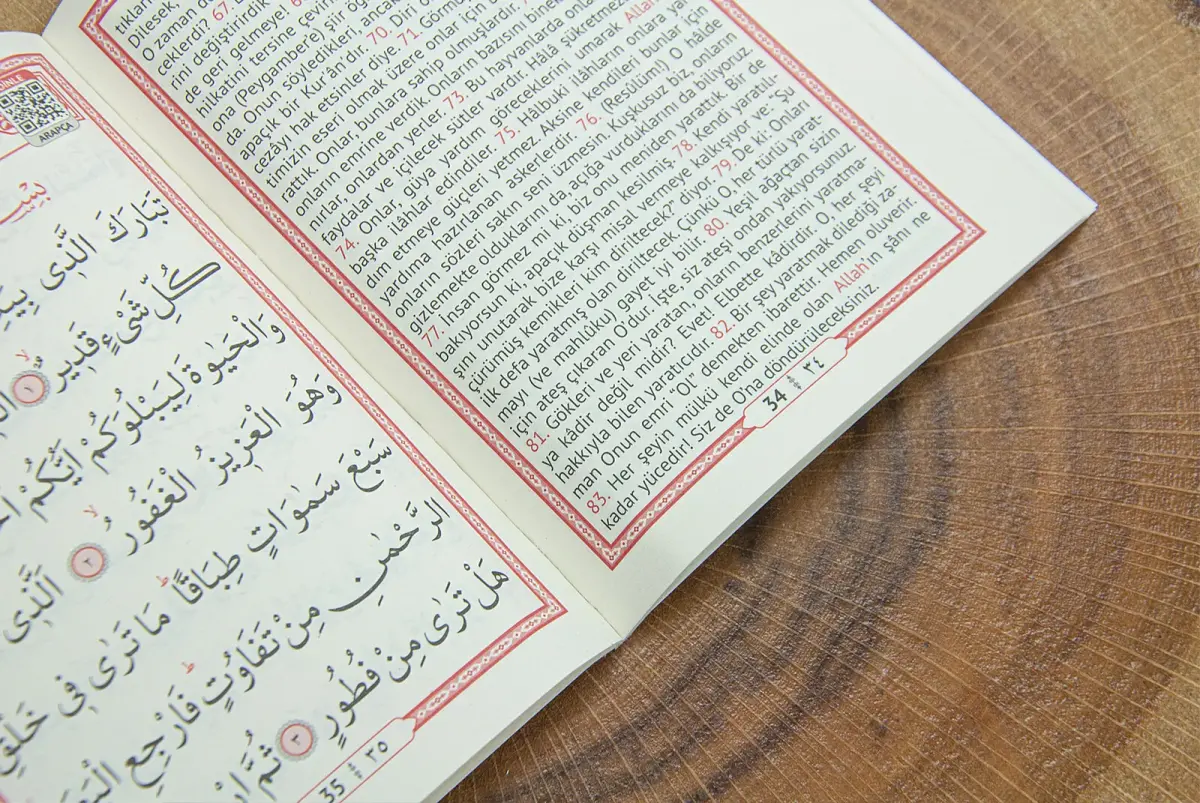 Dilesek,
O zaman
eklerdi? 67.
rini değiştirirdik
de geri getmeye
hilkatini tersine
ona (Peygambere) şiir
da. Onun söyledikleri,
apaçık bir Kur'ân'dır. 70. Diri
cezâyı hak etsinler diye. 71.
timizin eseri olmak üzere onlar için
rattık. Onlar bunlara sahip olmuşlardır.
onların emrine verdik. Onların bazısını
yarlar, onlardan yerler. 73. Bu hayvanlarda
faydalar ve içilecek sütler vardır. Hâlâ
74. Onlar, güya yardım göreceklerini umarak
başka ilâhlar edindiler. 75. Hâlbuki ilâhların onlara
dım etmeye güçleri yetmez. Aksine kendileri bunlar için
yardıma hazırlanan askerlerdir. 76. (Resûlüm!) O hâlde
onların sözleri sakın seni üzmesin. Kuşkusuz biz onların
gizlemekte olduklarını da, açığa vurduklarını da biliyoruz.
77. İnsan görmez mi ki, biz onu meniden yarattık. Bir de
bakıyorsun ki, apaçık düşman kesilmiş. 78. Kendi yaratılı-
şını unutarak bize karşı misal vermeye kalkışıyor ve: "Şu
çürümüş kemikleri kim diriltecek?" diyor. 79. De ki: Onları
ilk defa yaratmış olan diriltecek. Çünkü O, her türlü yarat-
mayı (ve mahlûku) gayet iyi bilir. 80. Yeşil ağaçtan sizin
için ateş çıkaran O'dur. İşte, siz ateşi ondan yakıyorsunuz.
81. Gökleri ve yeri yaratan onların benzerlerini yaratma-
ya kâdir değil midir? Evet! Elbette kâdirdir. O, her şeyi
hakkıyla bilen yaratıcıdır. 82. Bir şey yaratmak dilediği za-
man Onun emri "Ol" demekten ibarettir. Hemen oluverir.
83. Her şeyin mülkü kendi elinde olan Allah'ın şânı ne
kadar yücedir! Siz de O'na döndürüleceksiniz.
34 ٣٤
DİNLE
ARAPÇA
تَبَارَكَ الَّذِى
كُلِّ شَىْءٍ قَدِيرٌ ١
وَالْحَيٰوةَ لِيَبْلُوَكُمْ اَيُّكُمْ
وَهُوَ الْعَزِيزُ الْغَفُورُ ٢ اَلَّذِى
سَبْعَ سَمٰوَاتٍ طِبَاقًا مَا تَرٰى فِى خَلْقِ
الرَّحْمٰنِ مِنْ تَفَاوُتٍ فَارْجِعِ
هَلْ تَرٰى مِنْ فُطُورٍ ٣ ثُمَّ
35 ٣٥